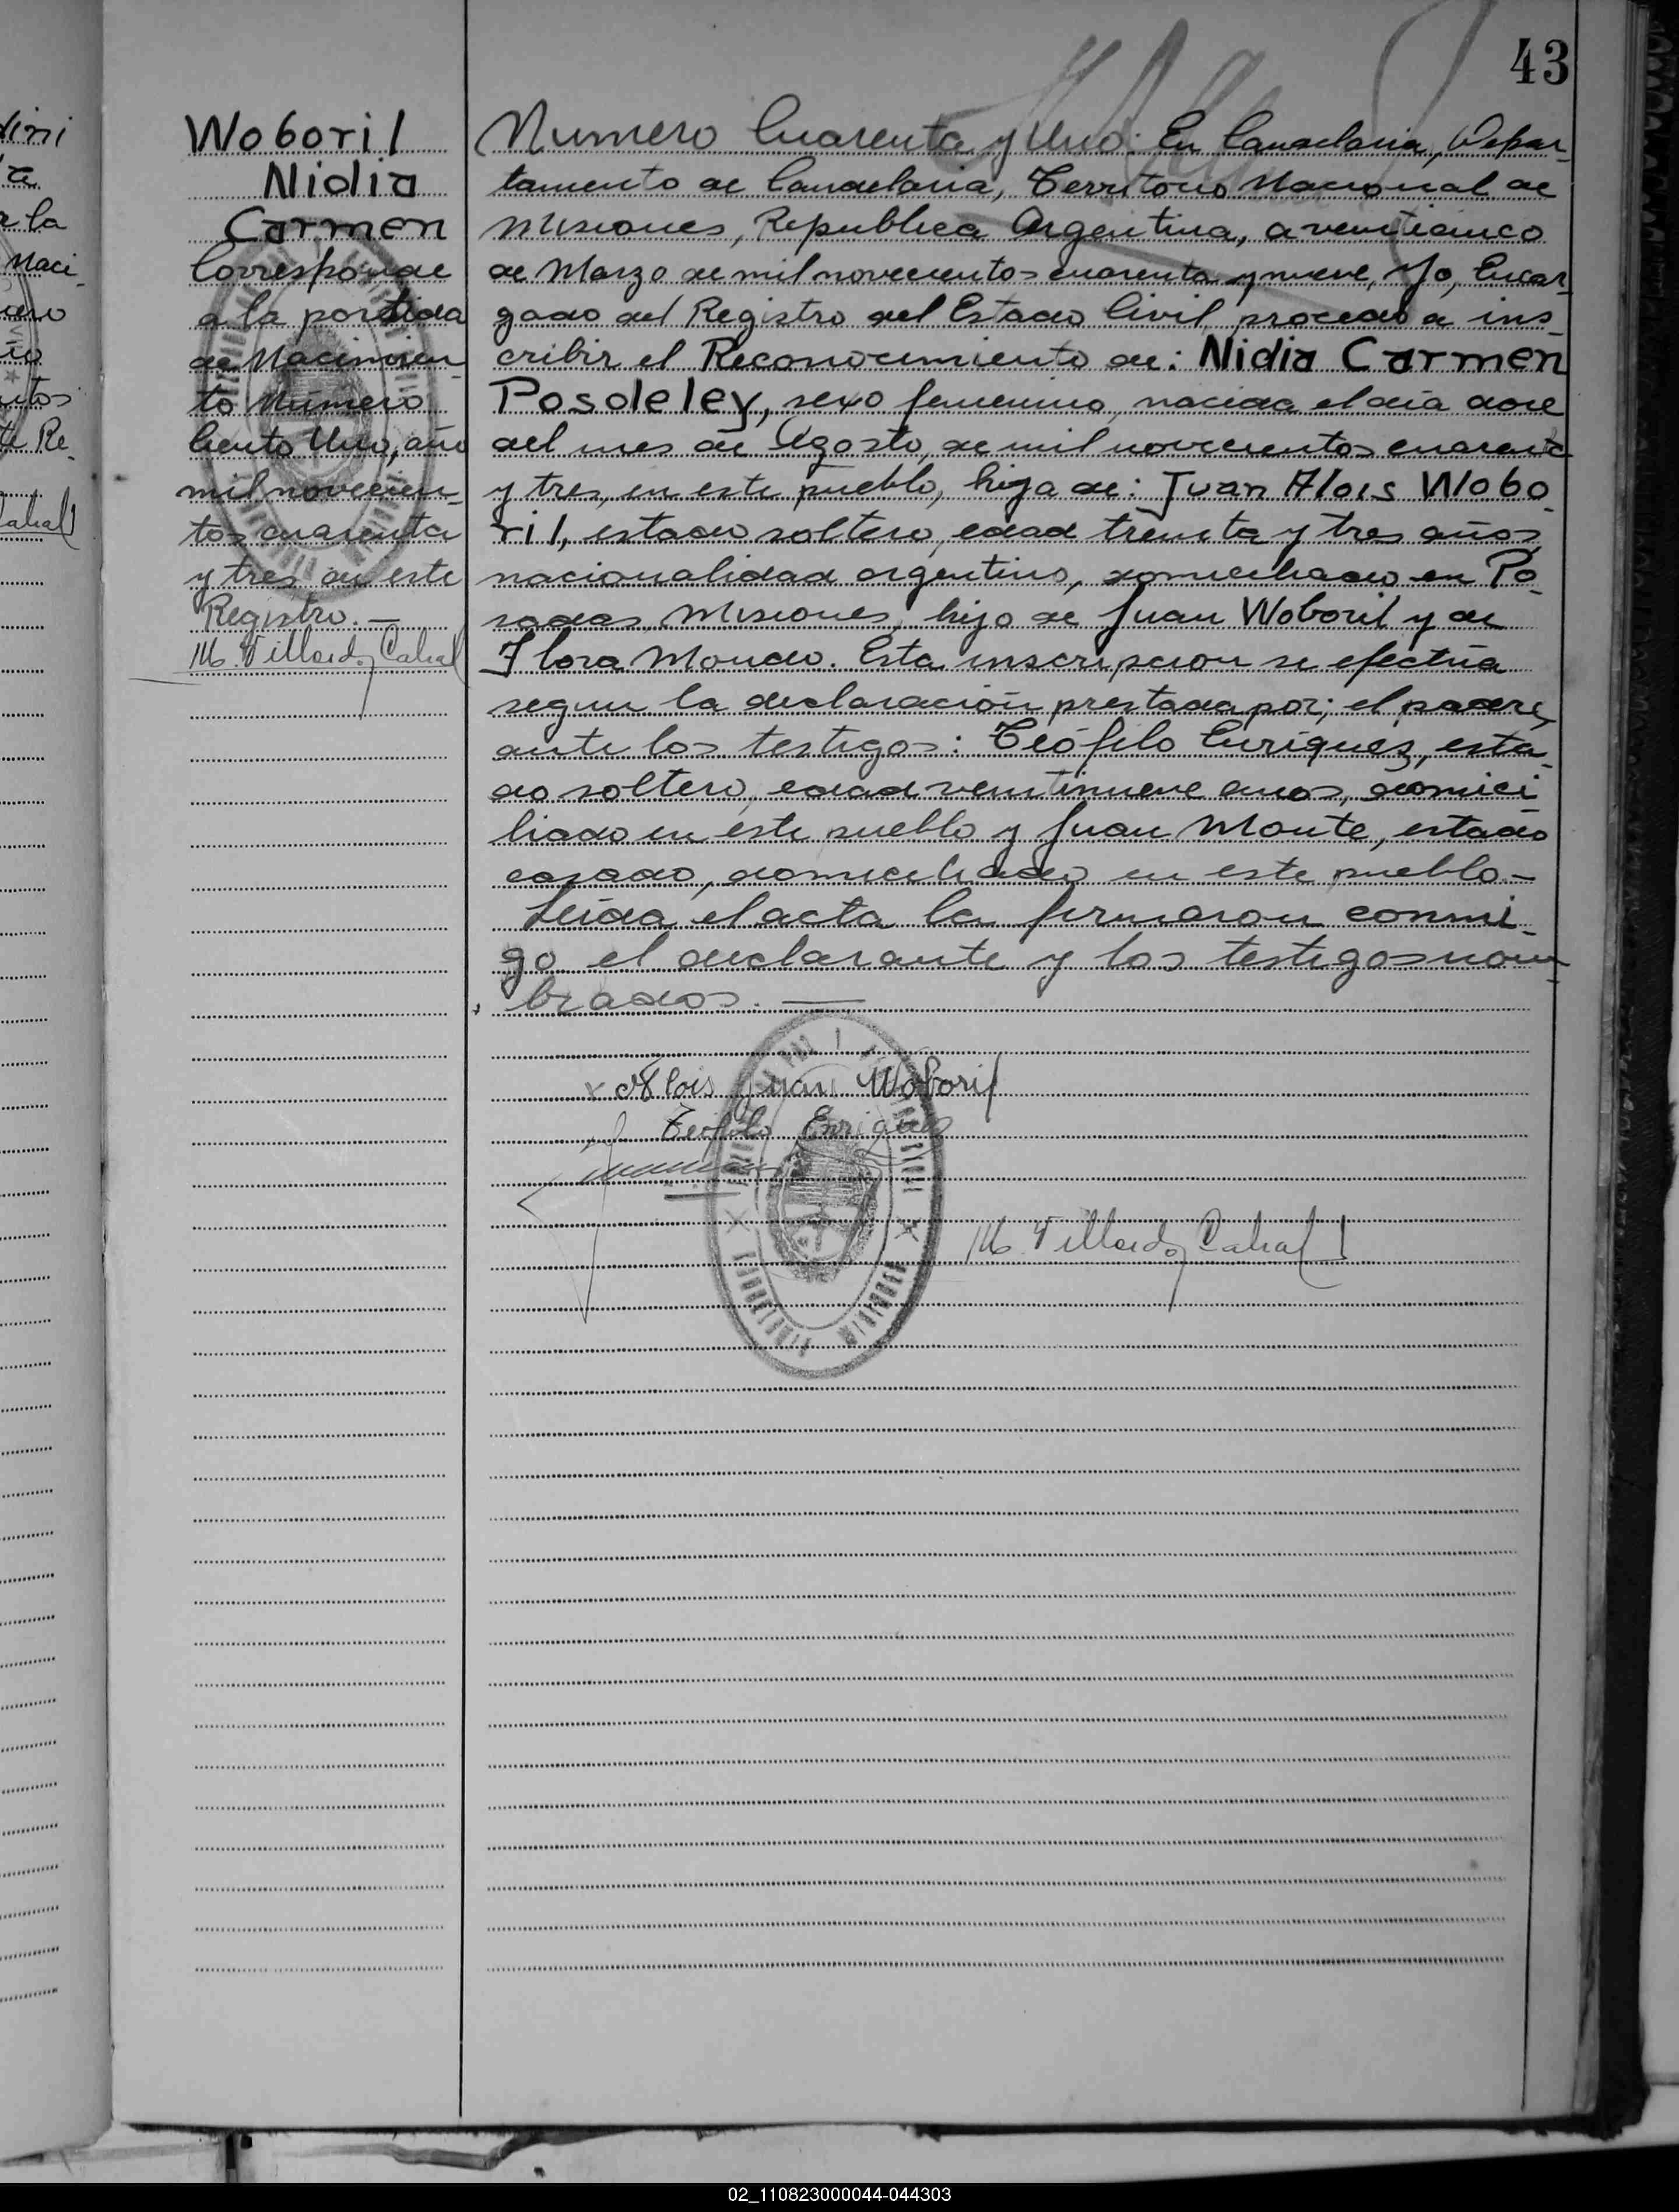 43
Woboril
Nidia
Carmen
Corresponde
a la partida
de Nacimien_
to Número
Ciento Uno, año
mil novecien_
tos cuarenta
y tres de este
Registro. —
M. Villordo Cabral
Numero Cuarenta y Uno: En Candelaria, Depar_
tamento de Candelaria, Territorio Nacional de
Misiones, Republica Argentina, a veinticinco
de Marzo de mil novecientos cuarenta y nueve, Yo, Encar_
gado del Registro del Estado Civil, procedo a ins_
cribir el Reconocimiento de: Nidia Carmen
Posdeley, sexo femenino, nacida el día doce
del mes de Agosto, de mil novecientos cuarenta
y tres, en este pueblo, hija de: Juan Alois Wobo_
ril, estado soltero, edad treinta y tres años,
nacionalidad argentino, domiciliado en Po_
sadas, Misiones, hijo de Juan Woboril y de
Flora Mondo. Esta inscripcion se efectúa
segun la declaración prestada por; el padre,
ante los testigos: Teófilo Enriques, esta_
do soltero, edad veintinueve años, domici_
liado en este pueblo y Juan Monte, estado
casado, domiciliado en este pueblo.—
Leída el acta la firmaron conmi_
go el declarante y los testigos nom_
brados. —
x Alois Juan Woboril
Teofilo Enriques
M. Villordo Cabral
02_110823000044-044303